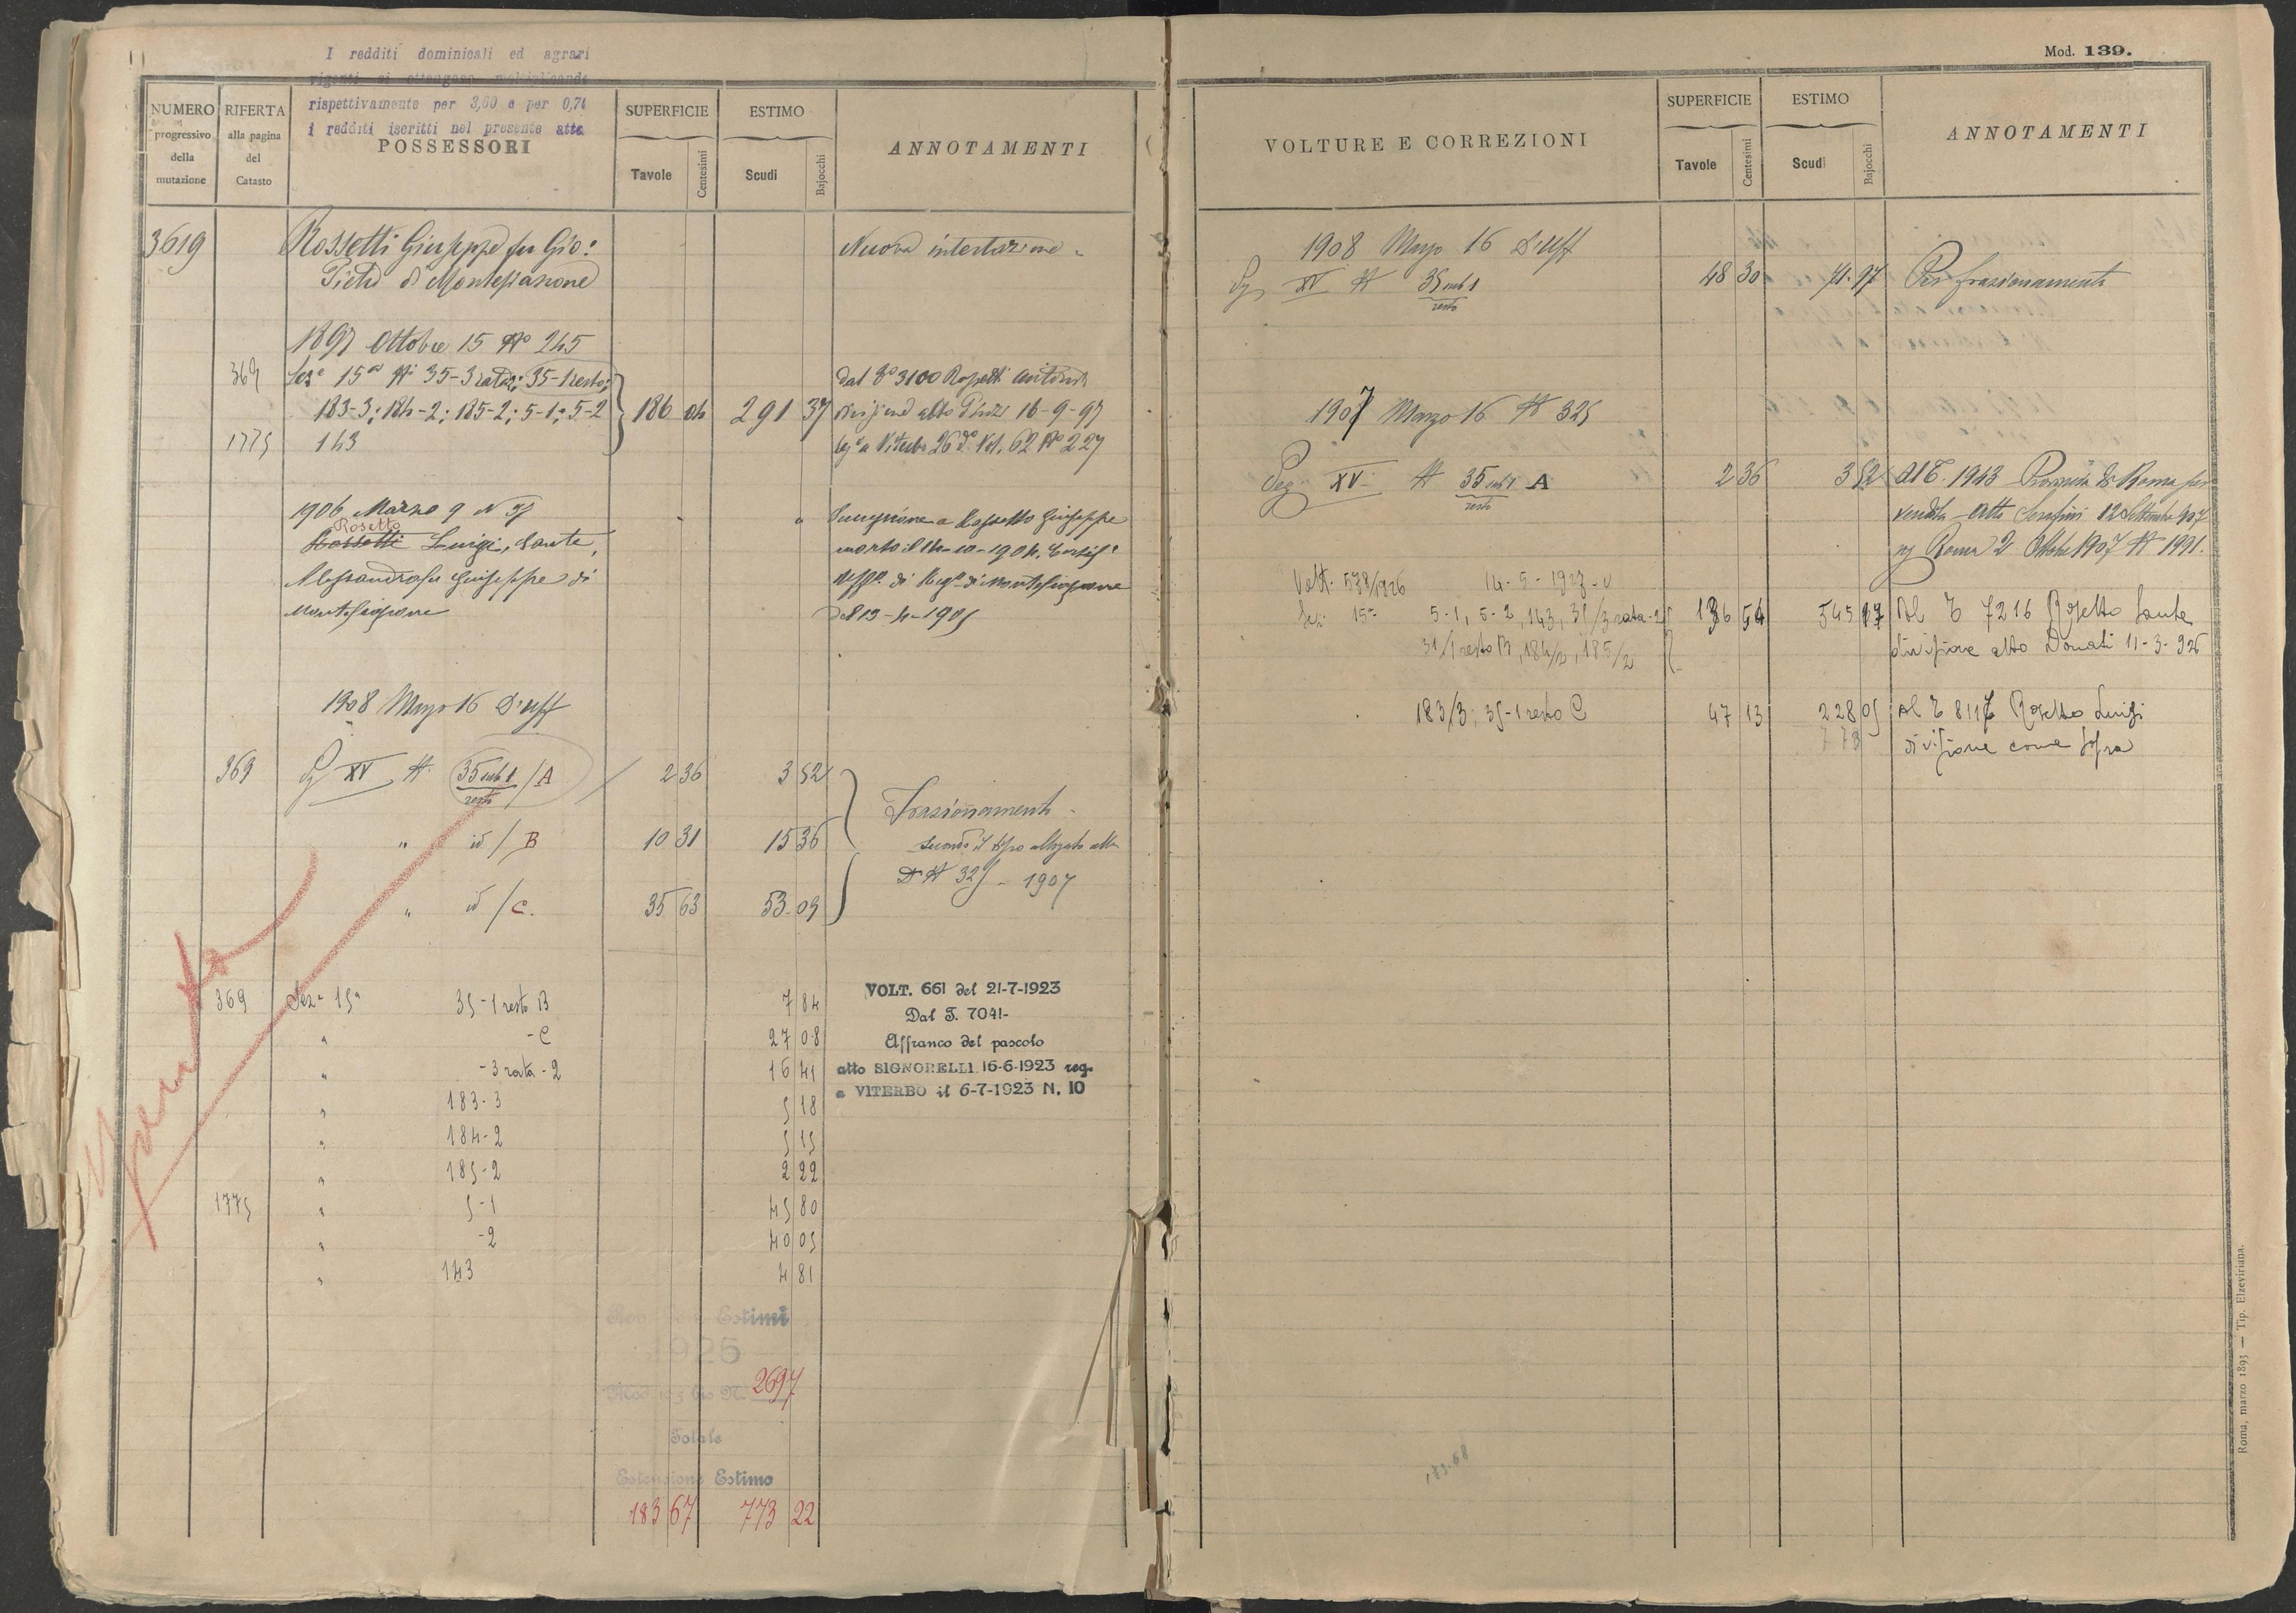 I redditi dominicali ed agrari
vigenti si ottengono moltiplicando
rispettivamente per 3,60 e per 0,74
i redditi iscritti nel presente atto
NUMERO progressivo della mutazione
RIFERTA alla pagina del Catasto
POSSESSORI
SUPERFICIE
Tavole Centesimi
ESTIMO
Scudi Bajocchi
ANNOTAMENTI
3619 Rossetti Giuseppe fu Gio: Nuova intestazione
Pietro di Montefiascone
1897 Ottobre 15 No 245
369 Seze 15a Ni 35-3 rata 2; 35-1 resto; dal To 3100 Rossetti Antonio
183-3; 184-2; 185-2; 5-1; 5-2 186 04 291 37 atto 16-9-97
1775 143 a Viterbo 26 do Vol. 62 No 227
1906 Marzo 9 N 37 Successione a Rossetto Giuseppe
Rosetto
Rossetti Luigi, Sante, morto il 14-10-1904. Certifo
Alessandro fu Giuseppe di di Rego di Montefiascone
Montefiascone del 13-4-1905
1908 Marzo 16 D'Uff
369 Sez XV N. 35 sub 1 resto / A 2 36 3 52 Frazionamento
" id / B 10 31 15 36 secondo il tipo allegato alla
" id / C. 35 63 53.09 D. N 325 - 1907
369 Seza 15a 35-1 resto B 7 84 VOLT. 661 del 21-7-1923
" -C 27 08 Dal T. 7041-
Affranco del pascolo
" -3 rata-2 16 41 atto SIGNORELLI 16-6-1923 reg.
" 183-3 5 18 a VITERBO il 6-7-1923 N. 10
" 184-2 5 15
" 185-2 2 22
1775 " 5-1 45 80
" -2 40 05
" 143 4 81
Estimi
1925
2697
Totale
Estensione Estimo
183 67 773 22
Mod. 139.
VOLTURE E CORREZIONI
SUPERFICIE
Tavole Centesimi
ESTIMO
Scudi Bajocchi
ANNOTAMENTI
1908 Marzo 16 D'Uff
Sez XV N 35 sub 1 resto 48 30 71.97 Per frazionamento
1907 Marzo 16 N 325
Sez. XV N 35 sub 1 resto A 2 36 3 52 Al T. 1943 Provincia di Roma per
vendita atto Serafini 12 Settembre 907
reg Roma 2 Ottobre 1907 N 1991.
Volt. 538/1926 14-5-1927
Sez. 15a 5-1, 5-2, 143, 35/3 rata-2 136 54 545 17 Al T 7216 Rosetto Sante
35/1 resto B, 184/2, 185/2 divisione atto Donati 11-3-926
183/3; 35-1 resto C 47 13 228 05 Al T 8117 Rosetto Luigi
773 divisione come sopra
183.68
Roma, marzo 1893 — Tip. Elzeviriana.